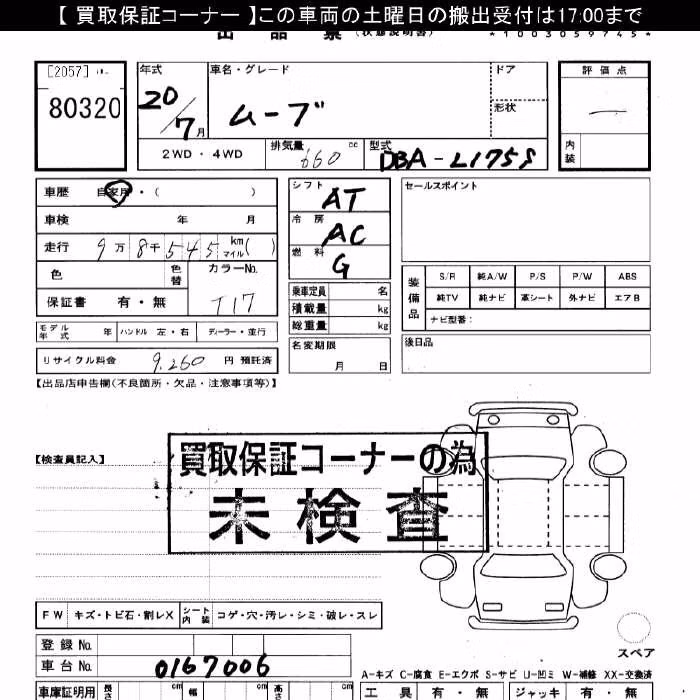 【 買取保証コーナー 】この車両の土曜日の搬出受付は17:00まで
出品票 (状態説明書) *1003059745*
[2057]
80320
年式 車名・グレード ドア 評価点
20/7月 ムーブ 形状 —
2WD・4WD 排気量 660 cc 型式 DBA-L175S 内装
車歴 自家用・( ) シフト AT セールスポイント
車検 年 月 冷房 AC
走行 9万8千545 km マイル( ) 燃料 G
色 色替 カラーNo. T17 乗車定員 名 装備品 S/R 純A/W P/S P/W ABS
保証書 有・無 積載量 kg 純TV 純ナビ 革シート 外ナビ エアB
総重量 kg ナビ型番:
モデル年式 年 ハンドル 左・右 ディーラー・並行 名変期限 月 日 後日品
リサイクル料金 9,260 円 預託済
【出品店申告欄(不良箇所・欠品・注意事項等)】
【検査員記入】
買取保証コーナーの為
未検査
FW キズ・トビ石・割レX シート内装 コゲ・穴・汚レ・シミ・破レ・スレ
登録No. スペア
車台No. 0167006
A-キズ C-腐食 E-エクボ S-サビ U-凹ミ W-補修 XX-交換済
車庫証明用 長さ cm 幅 cm 高さ cm 工具 有・無 ジャッキ 有・無